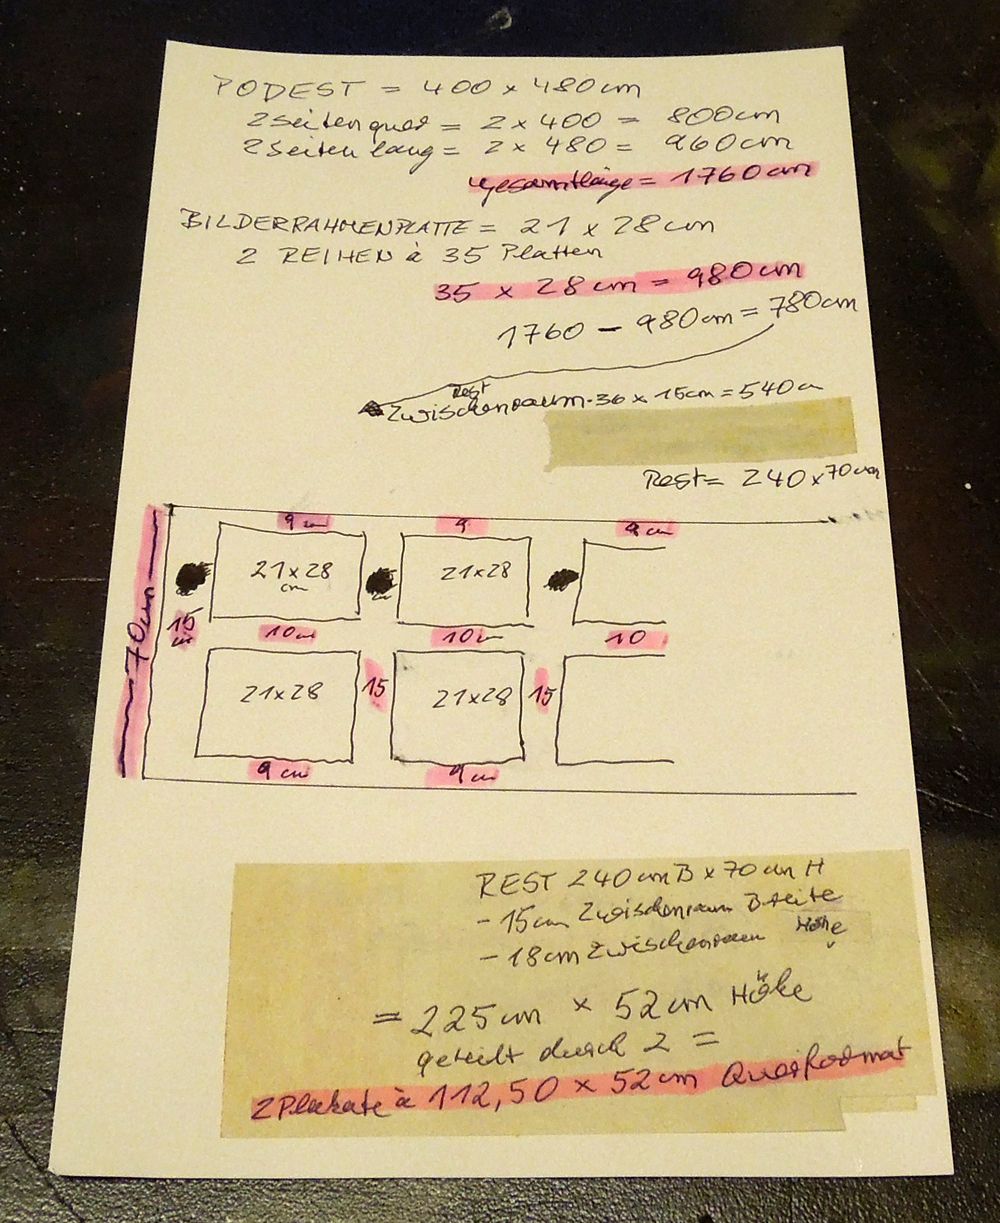 PODEST = 400 x 480 cm
2 Seiten quer = 2 x 400 = 800 cm
2 Seiten lang = 2 x 480 = 960 cm
Gesamtlänge = 1760 cm
BILDERRAHMENPLATTE = 21 x 28 cm
2 REIHEN à 35 Platten
35 x 28 cm = 980 cm
1760 - 980 cm = 780 cm
Rest
Zwischenraum 36 x 15 cm = 540 c
Rest = 240 x 70 cm
9 cm 9 9 cm
21 x 28 cm 21 x 28
70 cm
15 cm
10 cm 10 c 10
21 x 28 15 21 x 28 15
9 cm 9 cm
REST 240 cm B x 70 cm H
- 15 cm Zwischenraum Breite
- 18 cm Zwischenraum Höhe
= 225 cm x 52 cm Höhe
geteilt durch 2 =
2 Plakate à 112,50 x 52 cm Querformat